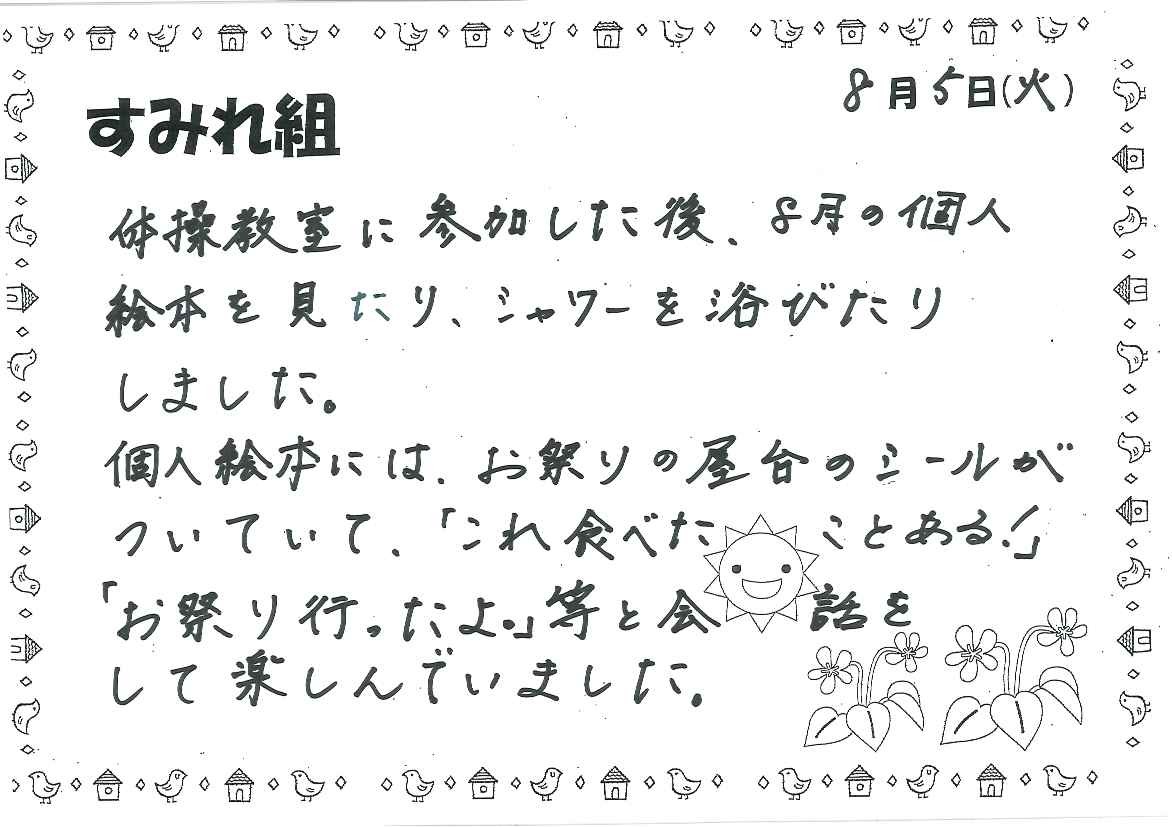 8月5日(火)
すみれ組
体操教室に参加した後、8月の個人
絵本を見たり、シャワーを浴びたり
しました。
個人絵本には、お祭りの屋台のシールが
ついていて、「これ食べたことある!」
「お祭り行ったよ。」等と会話を
して楽しんでいました。